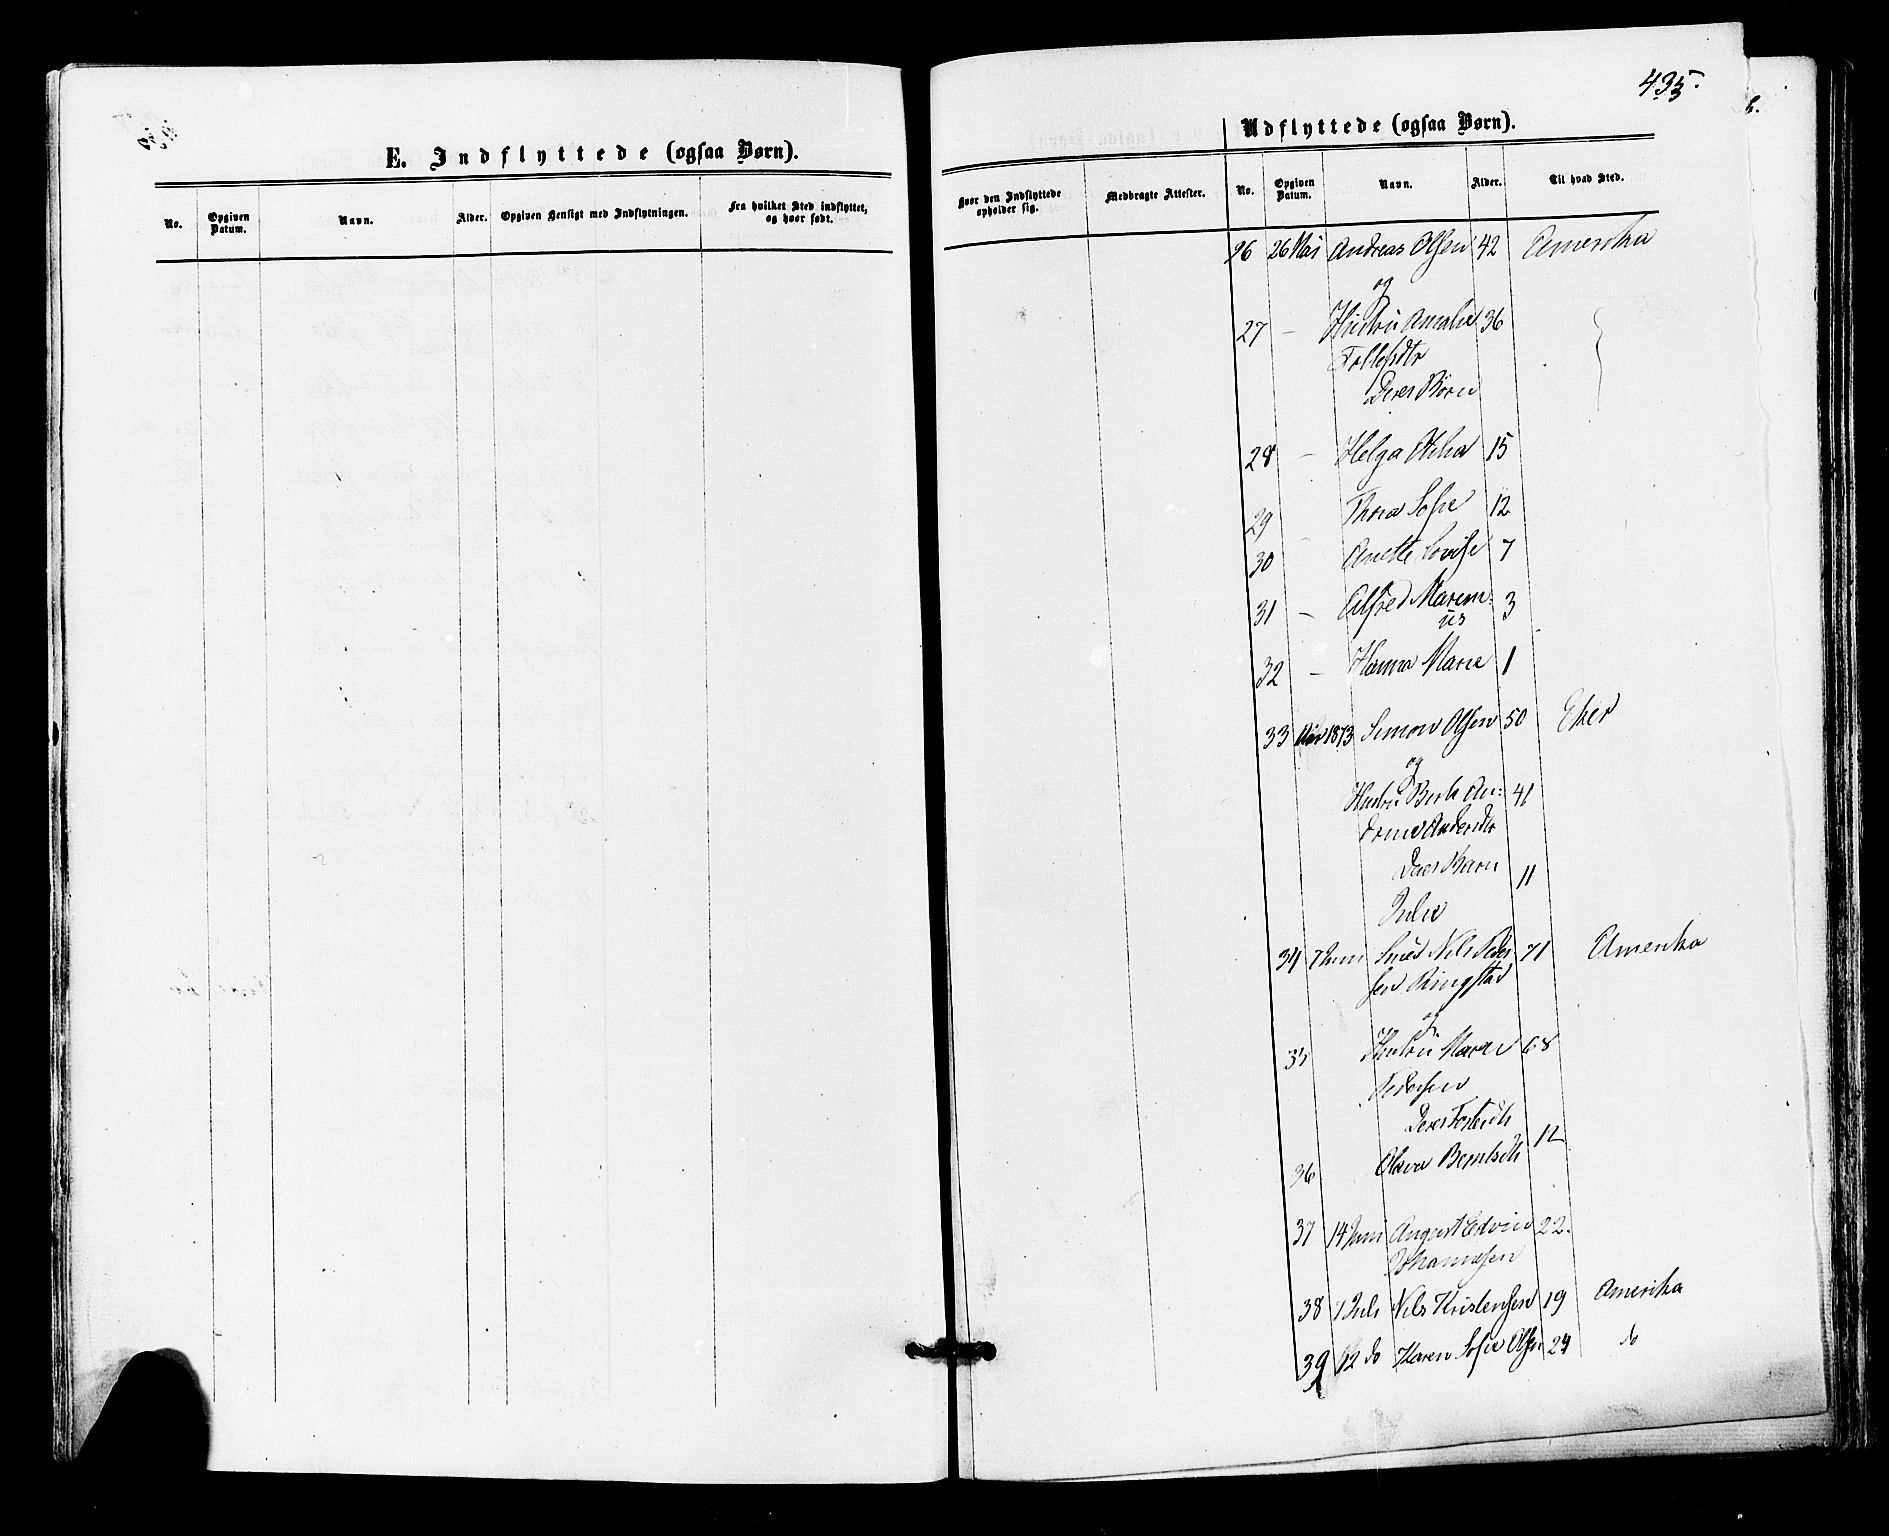 435.
E. Indflyttede (ogsaa Børn).
No. Opgiven Datum. Navn. Alder. Opgiven Hensigt med Indflytningen. Fra hvilket Sted indflyttet, og hvor født.
Udflyttede (ogsaa Børn).
Hvor den Indflyttede opholder sig. Medbragte Attester. No. Opgiven Datum. Navn. Alder. Til hvad Sted.
26 26 Mai Andreas Olsen 42 Amerika
og
27 – Hustru Amalie 36
Deres Børn
28 – Helga 15
29 Thora Sofie 12
30 Anette Lovise 7
31 – Alfred Marin- 3
us
32 – Hanna Marie 1
33 1873 Simon Olsen 50 Eker
og
Hustru Berte An- 41
drine Andersdtr
Deres Barn
Julie 11
34 7 Juni Nils Peder- 71 Amerika
sen Ringstad
og
35 Hustru Maren 68
Pedersen
Deres Fosterdtr
36 Olava Berntsdtr 12
37 14 Juni August Edvin 22.
Johannesen
38 1 Juli Nils Kristensen 19 Amerika
39 12 do Karen Sofie Olsen 24 do